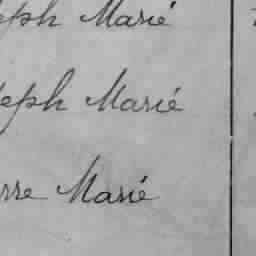 eph Marié
eph Marié
rre Marié